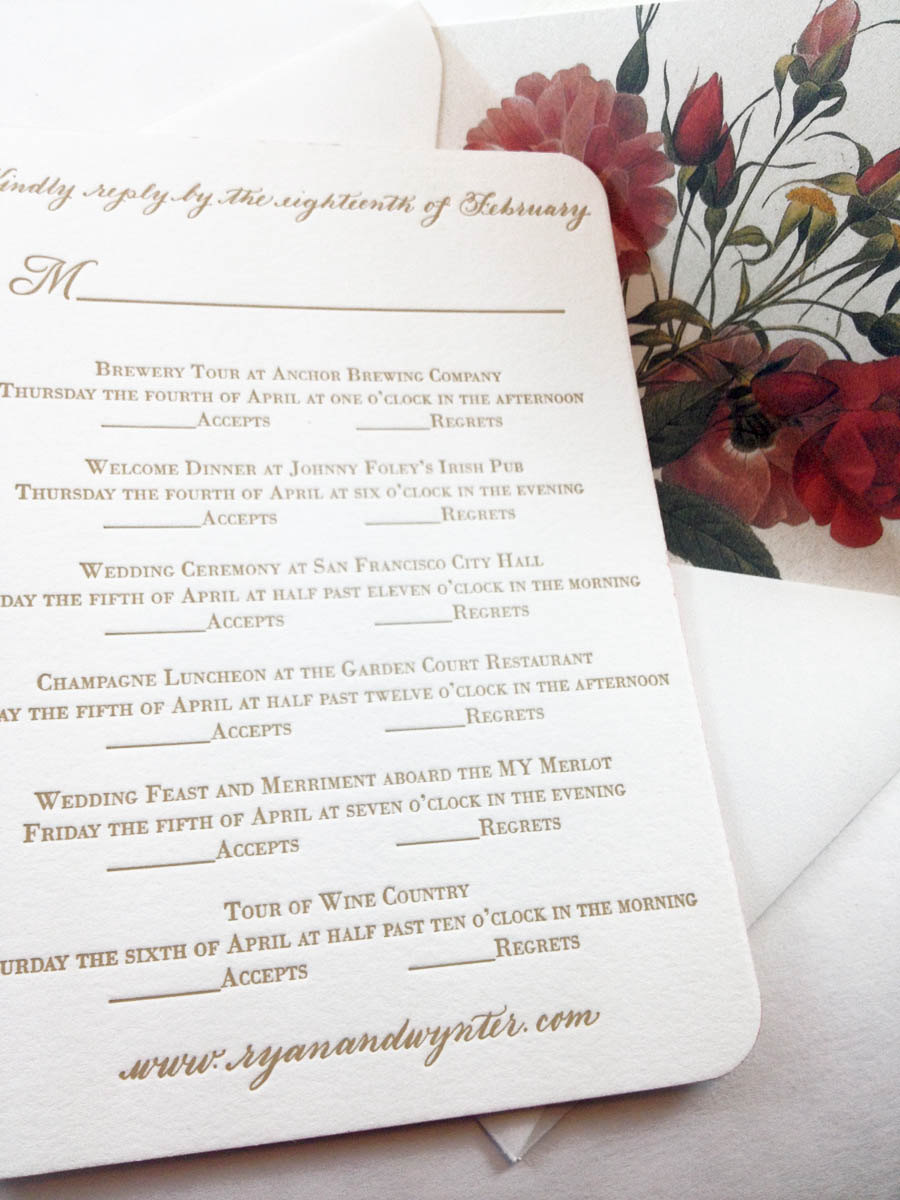 kindly reply by the eighteenth of February
M
Brewery Tour at Anchor Brewing Company
Thursday the fourth of April at one o'clock in the afternoon
Accepts Regrets
Welcome Dinner at Johnny Foley's Irish Pub
Thursday the fourth of April at six o'clock in the evening
Accepts Regrets
Wedding Ceremony at San Francisco City Hall
day the fifth of April at half past eleven o'clock in the morning
Accepts Regrets
Champagne Luncheon at the Garden Court Restaurant
ay the fifth of April at half past twelve o'clock in the afternoon
Accepts Regrets
Wedding Feast and Merriment aboard the MY Merlot
Friday the fifth of April at seven o'clock in the evening
Accepts Regrets
Tour of Wine Country
urday the sixth of April at half past ten o'clock in the morning
Accepts Regrets
www.ryanandwynter.com